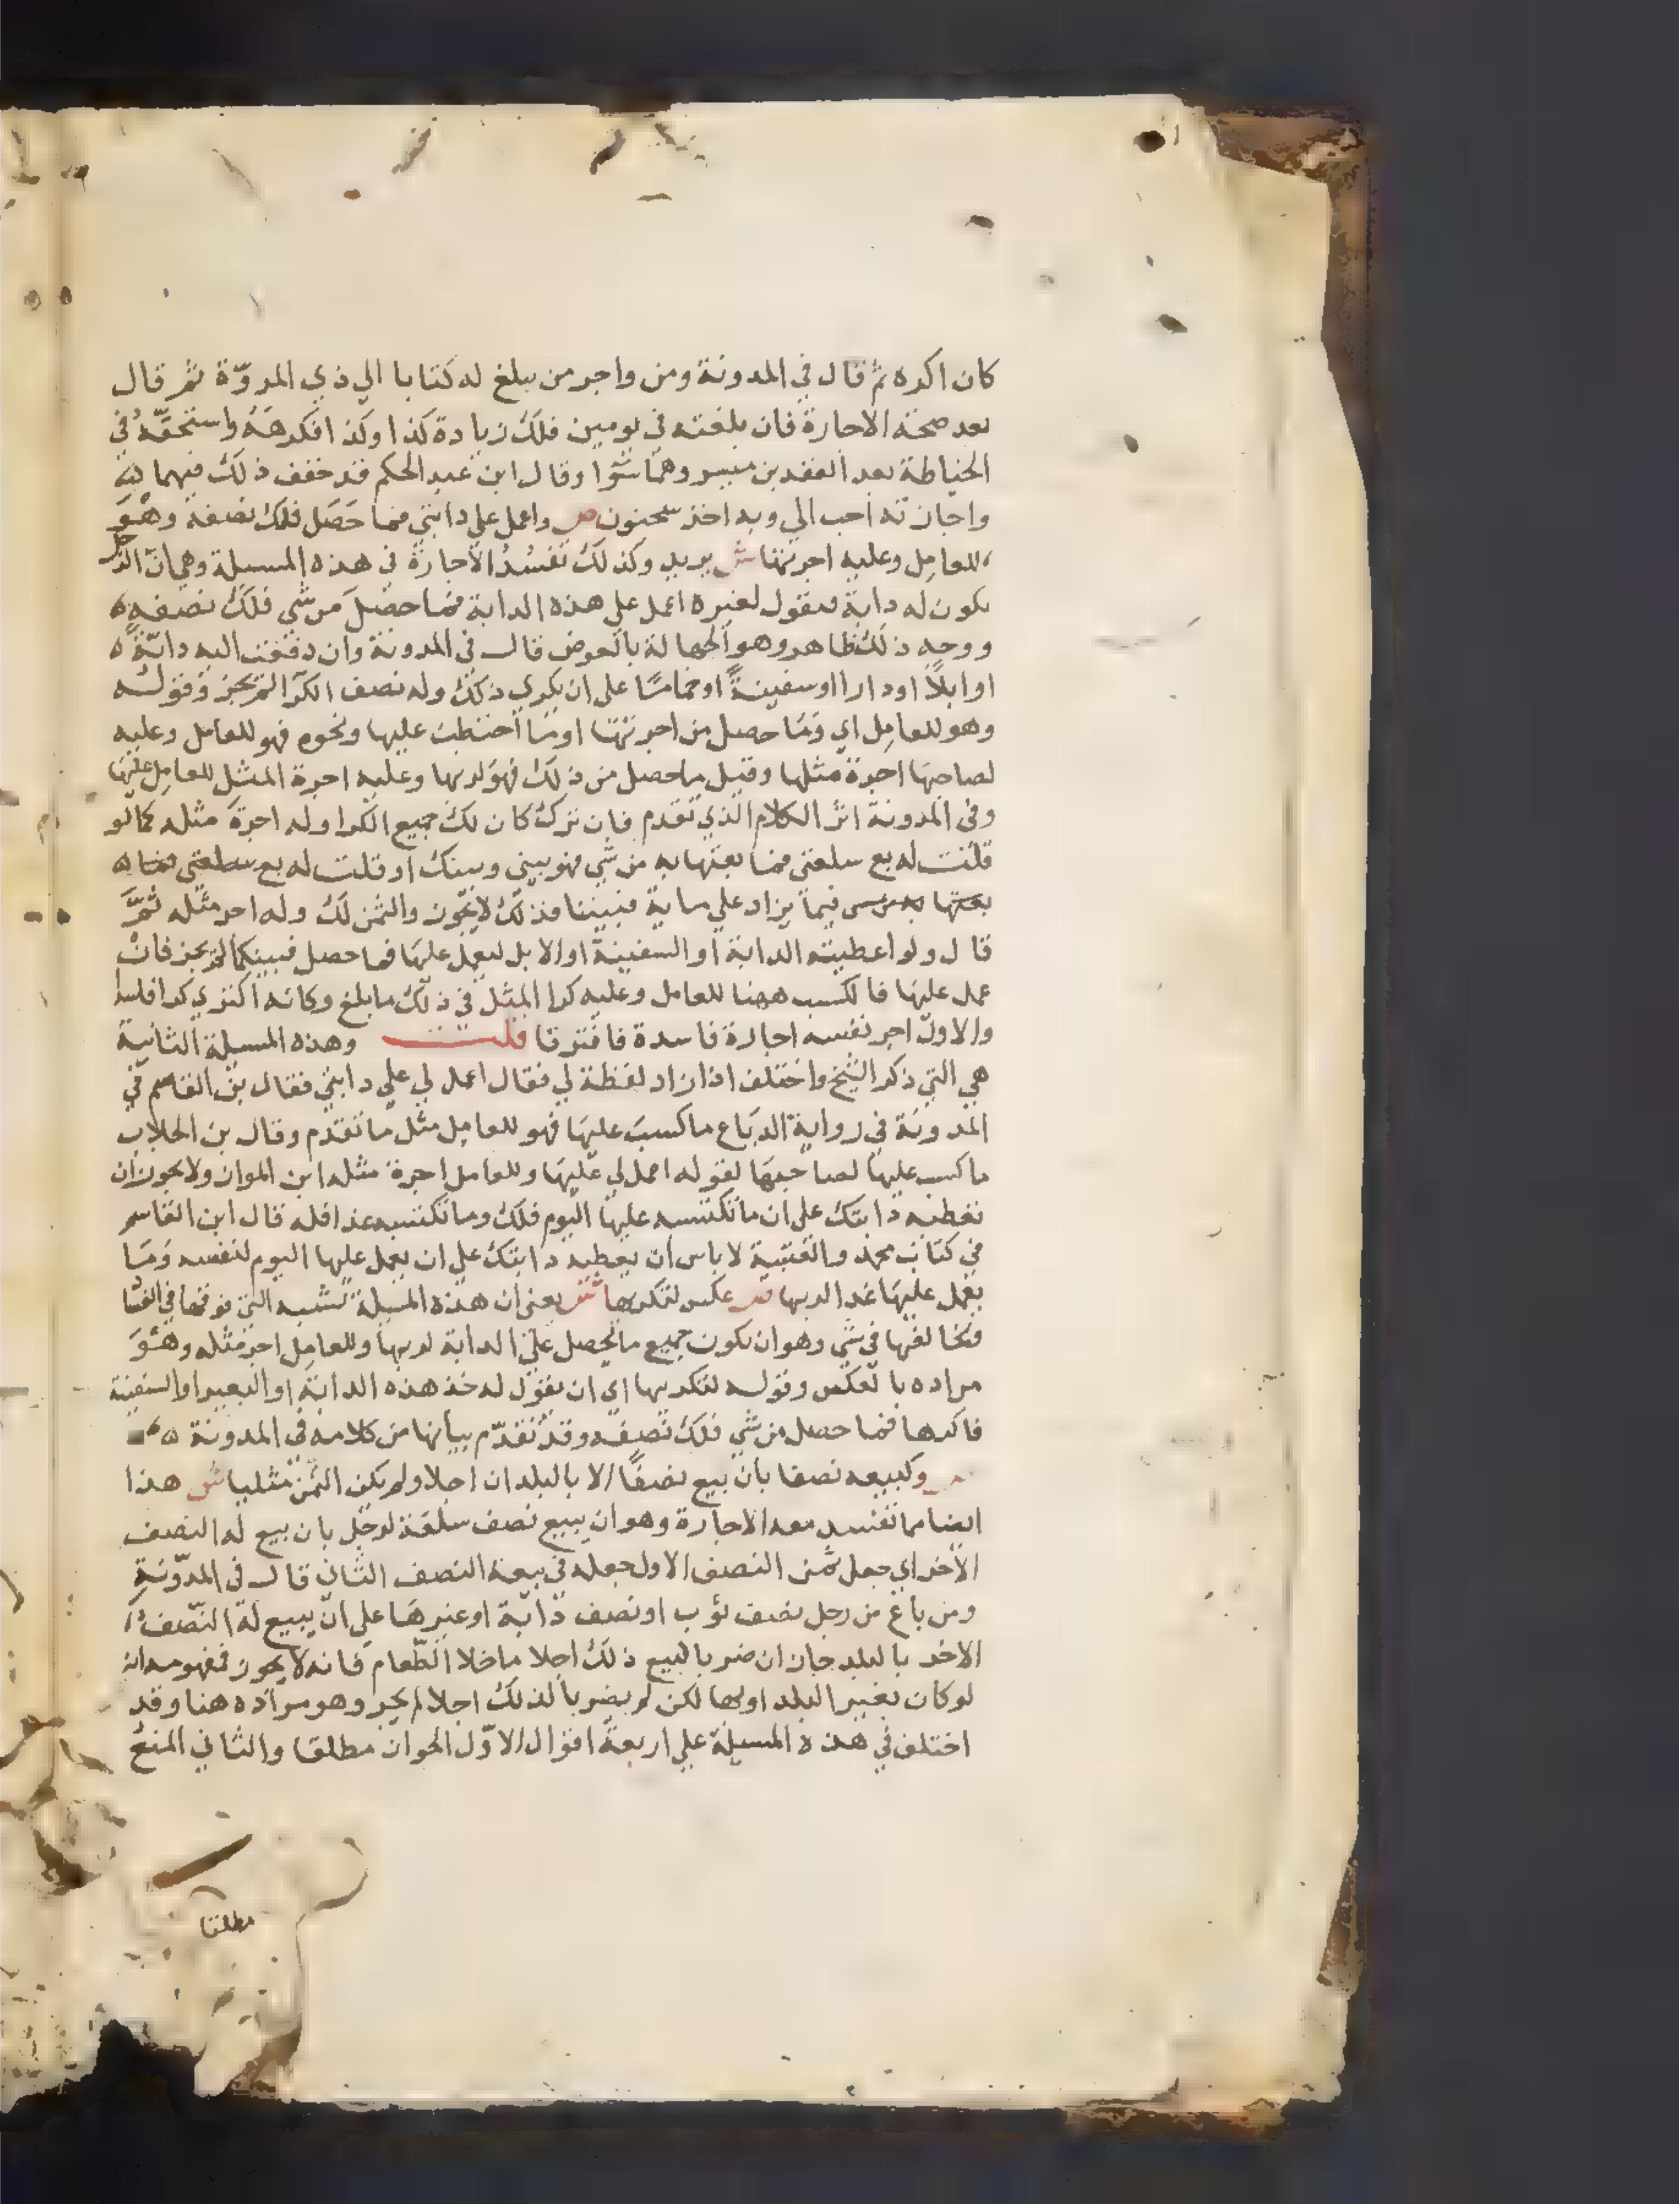 كان اكره ثم قال في المدونة ومن واجر من يبلغ له كتابا الي ذي المروّة ثم قال
بعد صحة الاجارة فان بلغته في يومين فلك زيادة كذا وكذا فكرهه واستحقّه في
الخياطة بعد العقد بن ميسر وهما سوا وقال ابن عبد الحكم قد خفف ذلك فيهما
واجازته احب الي وبه اخذ سحنون ص واعمل علي دابتي فما حصل فلك نصفه وهو
للعامل وعليه اجرتها ش يريد وكذلك تفسد الاجارة في هذه المسيلة وهي ان الرجل
يكون له دابة فيقول لغيره اعمل علي هذه الدابة فما حصل من شي فلك نصفه ه
ووجه ذلك ظاهر وهو الجهالة بالعوض قال في المدونة وان دفعت اليه دابّة ه
او ابلاً او دارا او سفينة او حماما علي ان يكري ذلك وله نصف الكرا لم يجز وقوله
وهو للعامل اي وما حصل من اجرتها او ما احتطب عليها ونحوه فهو للعامل وعليه
لصاحبها اجرة مثلها وقيل ما حصل من ذلك فهو لربها وعليه اجرة المثل للعامل عليها
وفي المدونة اثر الكلام الذي تقدم فان نزل كان لك جميع الكرا وله اجرة مثله كما لو
قلت له بع سلعتي فما بعتها به من شي فهو بيني وبينك او قلت له بع سلعتي فما ه
بعتها به من شي فيما يزاد علي ماية فبيننا فذلك لا يجوز والثمن لك وله اجر مثله ثمّ
قال ولو اعطيته الدابة او السفينة او الابل ليعمل عليها فما حصل فبينكما لم يجز فان
عمل عليها فالكسب ههنا للعامل وعليه كرا المثل في ذلك ما بلغ وكانه اكتري كرا فاسدا
والاول اجر نفسه اجارة فاسدة فافترقا قلت وهذه المسيلة الثانية
هي التي ذكر الشيخ واختلف اذا زاد لفظة لي فقال اعمل لي علي دابتي فقال بن القاسم في
المدونة في رواية الدباغ ما كسب عليها فهو للعامل مثل ما تقدم وقال بن الجلاب
ما كسب عليها لصاحبها لقوله اعمل لي عليها وللعامل اجرة مثله ابن المواز ولا يجوز ان
تعطيه دابتك علي ان ما تكتسبه عليها اليوم فلك وما تكتسبه غدا فله قال ابن القاسم
في كتاب محمد والعتبية لا باس ان يعطيه دابتك علي ان يعمل عليها اليوم لنفسه وما
يعمل عليها غدا لربها ص عكس لتكريها ش يعني ان هذه المسيلة تشبه التي فوقها في الفسا
وتخالفها في شي وهو ان يكون جميع ما يحصل علي الدابة لربها وللعامل اجر مثله وهو
مراده بالعكس وقوله لتكريها اي ان يقول له خذ هذه الدابة او البعير او السفينة
فاكرها فما حصل من شي فلك نصفه وقد تقدم بيانها من كلامه في المدونة ه
ص وكبيعه نصفا بان يبيع نصفًا الا بالبلد ان اجلا ولم يكن الثمن مثليا ش هذا
ايضا مما تفسد معه الاجارة وهو ان يبيع نصف سلعة لرجل بان يبيع له النصف
الاخر اي جعل ثمن النصف الاول جعله في بيعة النصف الثاني قال في المدونة
ومن باع من رجل نصف ثوب او نصف دابّة او غيرها علي ان يبيع له النصف
الاخر بالبلد جاز ان ضربا للبيع ذلك اجلا ما خلا الطعام فانه لا يجوز فمفهومه انه
لو كان بغير البلد او بها لكن لم يضربا لذلك اجلا لم يجز وهو مراده هنا وقد
اختلف في هذه المسيلة علي اربعة اقوال الاوّل الجواز مطلقا والثاني المنع
مطلقا